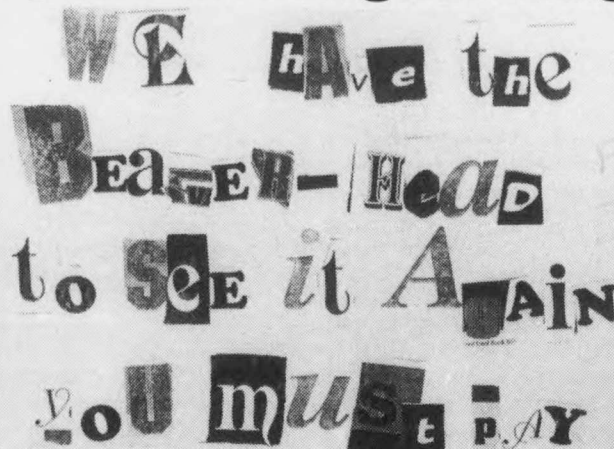 WE hAve the
BEaVER-HeaD
to SeE it AGAiN
yoU must pAY